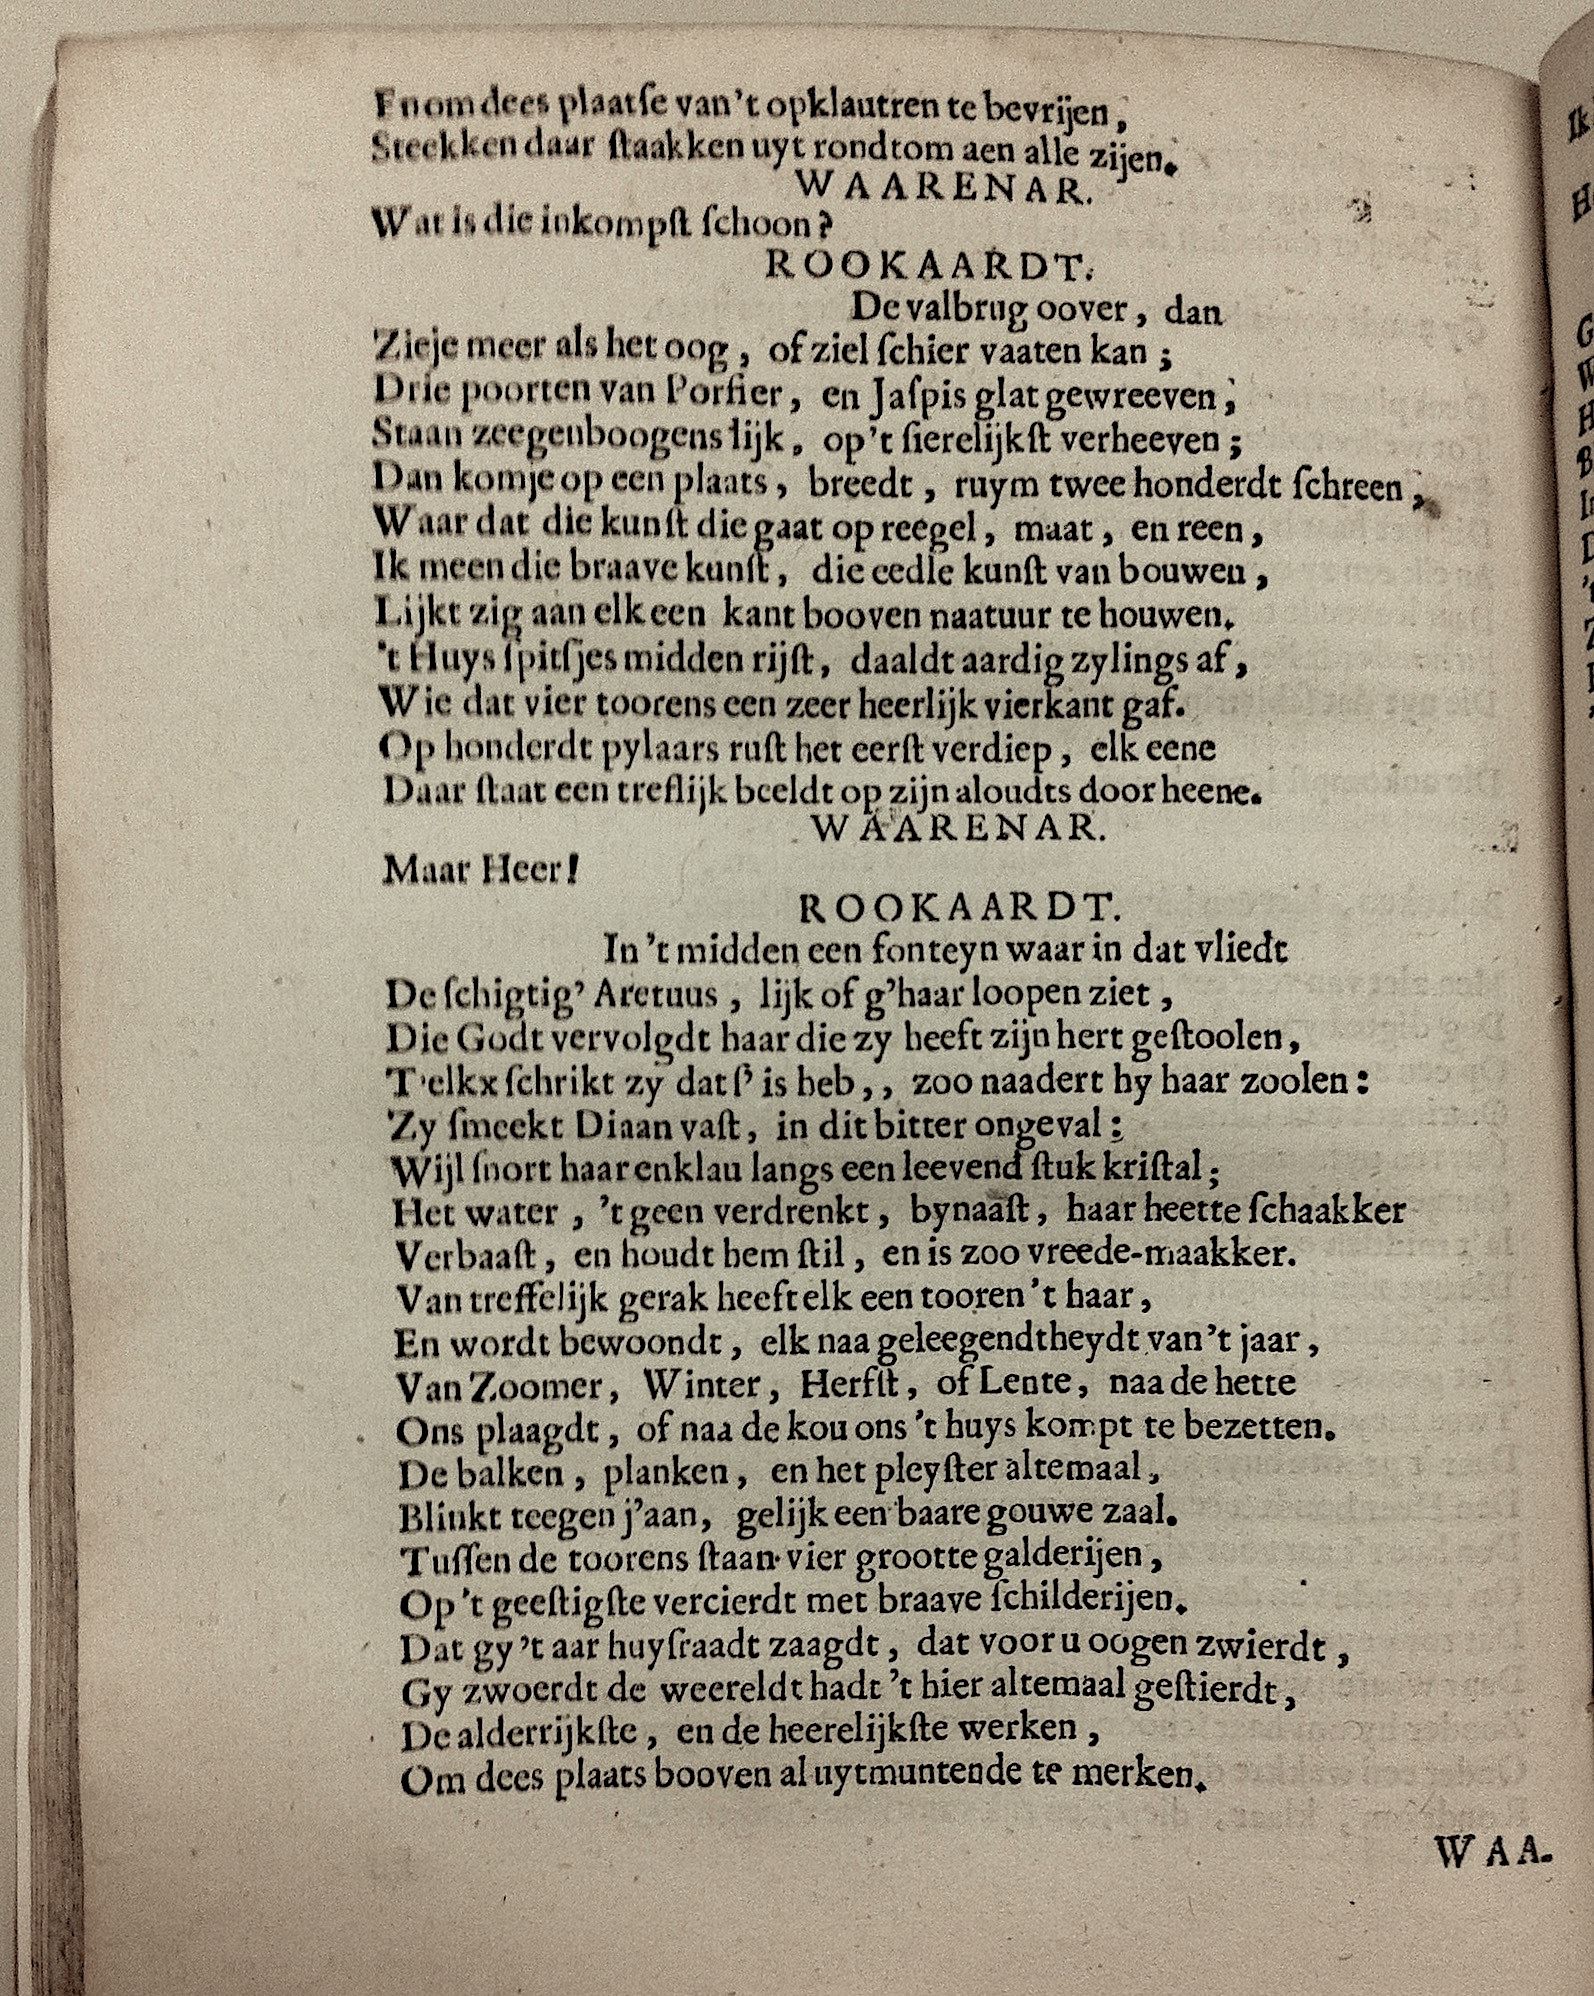 En om dees plaatſe van't opklautren te bevrijen,
Steekken daar ſtaakken uyt rondtom aen alle zijen.
WAARENAR.
Wat is die inkompſt ſchoon?
ROOKAARDT.
De valbrug oover, dan
Zieje meer als het oog, of ziel ſchier vaaten kan;
Drie poorten van Porfier, en Jaſpis glat gewreeven;
Staan zeegenboogens lijk, op't ſierelijkſt verheeven;
Dan komje op een plaats, breedt, ruym twee honderdt ſchreen,
Waar dat die kunſt die gaat op reegel, maat, en reen,
Ik meen die braave kunſt, die eedle kunſt van bouwen,
Lijkt zig aan elk een kant booven naatuur te houwen.
't Huys ſpitſjes midden rijſt, daaldt aardig zylings af,
Wie dat vier toorens een zeer heerlijk vierkant gaf.
Op honderdt pylaars ruſt het eerſt verdiep, elk eene
Daar ſtaat een treflijk beeldt op zijn aloudts door heene.
WAARENAR.
Maar Heer!
ROOKAARDT.
In 't midden een fonteyn waar in dat vliedt
De ſchigtig' Aretuus, lijk of g'haar loopen ziet,
Die Godt vervolgdt haar die zy heeft zijn hert geſtoolen,
T'elkx ſchrikt zy dat ſ' is heb,, zoo naadert hy haar zoolen:
Zy ſmeekt Diaan vaſt, in dit bitter ongeval:
Wijl ſnort haar enklau langs een leevend ſtuk kriſtal;
Het water, 't geen verdrenkt, bynaaſt, haar heette ſchaakker
Verbaaſt, en houdt hem ſtil, en is zoo vreede-maakker.
Van treffelijk gerak heeft elk een tooren 't haar,
En wordt bewoondt, elk naa geleegendtheydt van't jaar,
Van Zoomer, Winter, Herfſt, of Lente, naa de hette
Ons plaagdt, of naa de kou ons 't huys kompt te bezetten.
De balken, planken, en het pleyſter altemaal,
Blinkt teegen j'aan, gelijk een baare gouwe zaal.
Tuſſen de toorens ſtaan vier grootte galderijen,
Op 't geeſtigſte vercierdt met braave ſchilderijen.
Dat gy 't aar huyſraadt zaagdt, dat voor u oogen zwierdt,
Gy zwoerdt de weereldt hadt 't hier altemaal geſtierdt,
De alderrijkſte, en de heerelijkſte werken,
Om dees plaats booven al uytmuntende te merken.
WAA-